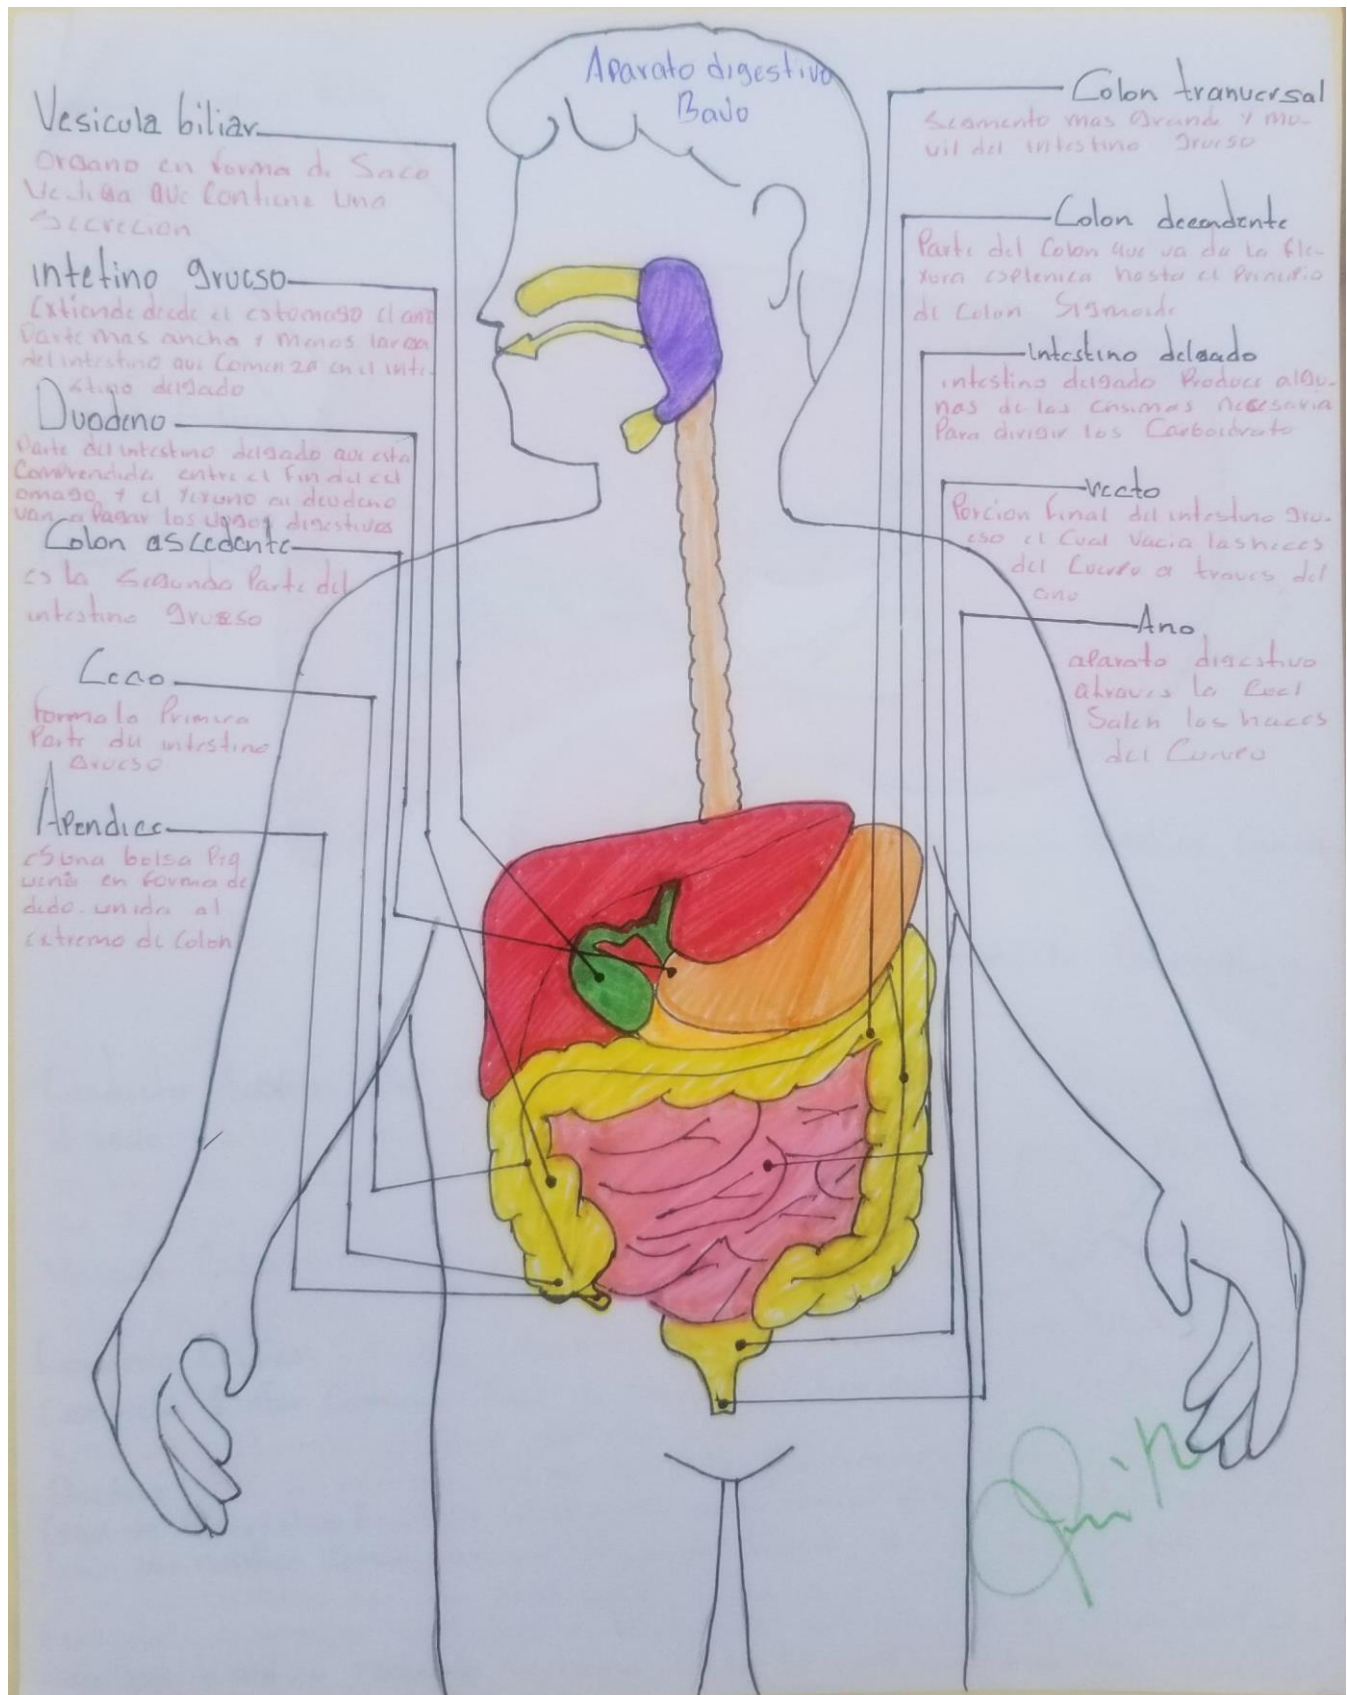 Aparato digestivo
Bajo
Vesicula biliar
organo en forma de Saco
que Contiene una
Secrecion
intetino grueso
Extiende desde el estomago el ano
Parte mas ancha y menos larga
del intestino que Comenza en el inte-
stino delgado
Duodeno
Parte del intestino delgado que esta
Comprendida entre el fin del est
omago y el
van a Pagar los digestivos
Colon ascedente
es la Segunda Parte del
intestino grueso
Ceao
forma la Primera
Parte del intestino
Grueso
Apendice
es una bolsa Peq
uena en forma de
dedo unida al
extremo de Colon
Colon tranversal
Segmento mas grande y mo-
vil del intestino grueso
Colon decendente
Parte del Colon que va da la fle-
xura esplenica hasta el Principio
de Colon Sigmoide
Intestino delgado
intestino delgado Produce algu-
nas de las ensimas necesaria
Para dividir los Carboidrato
recto
Porcion final del intestino gru-
eso el Cual vacia las heces
del Cuerpo a traves del
ano
Ano
aparato digestivo
atraves la Cual
Salen las haces
del Cuerpo